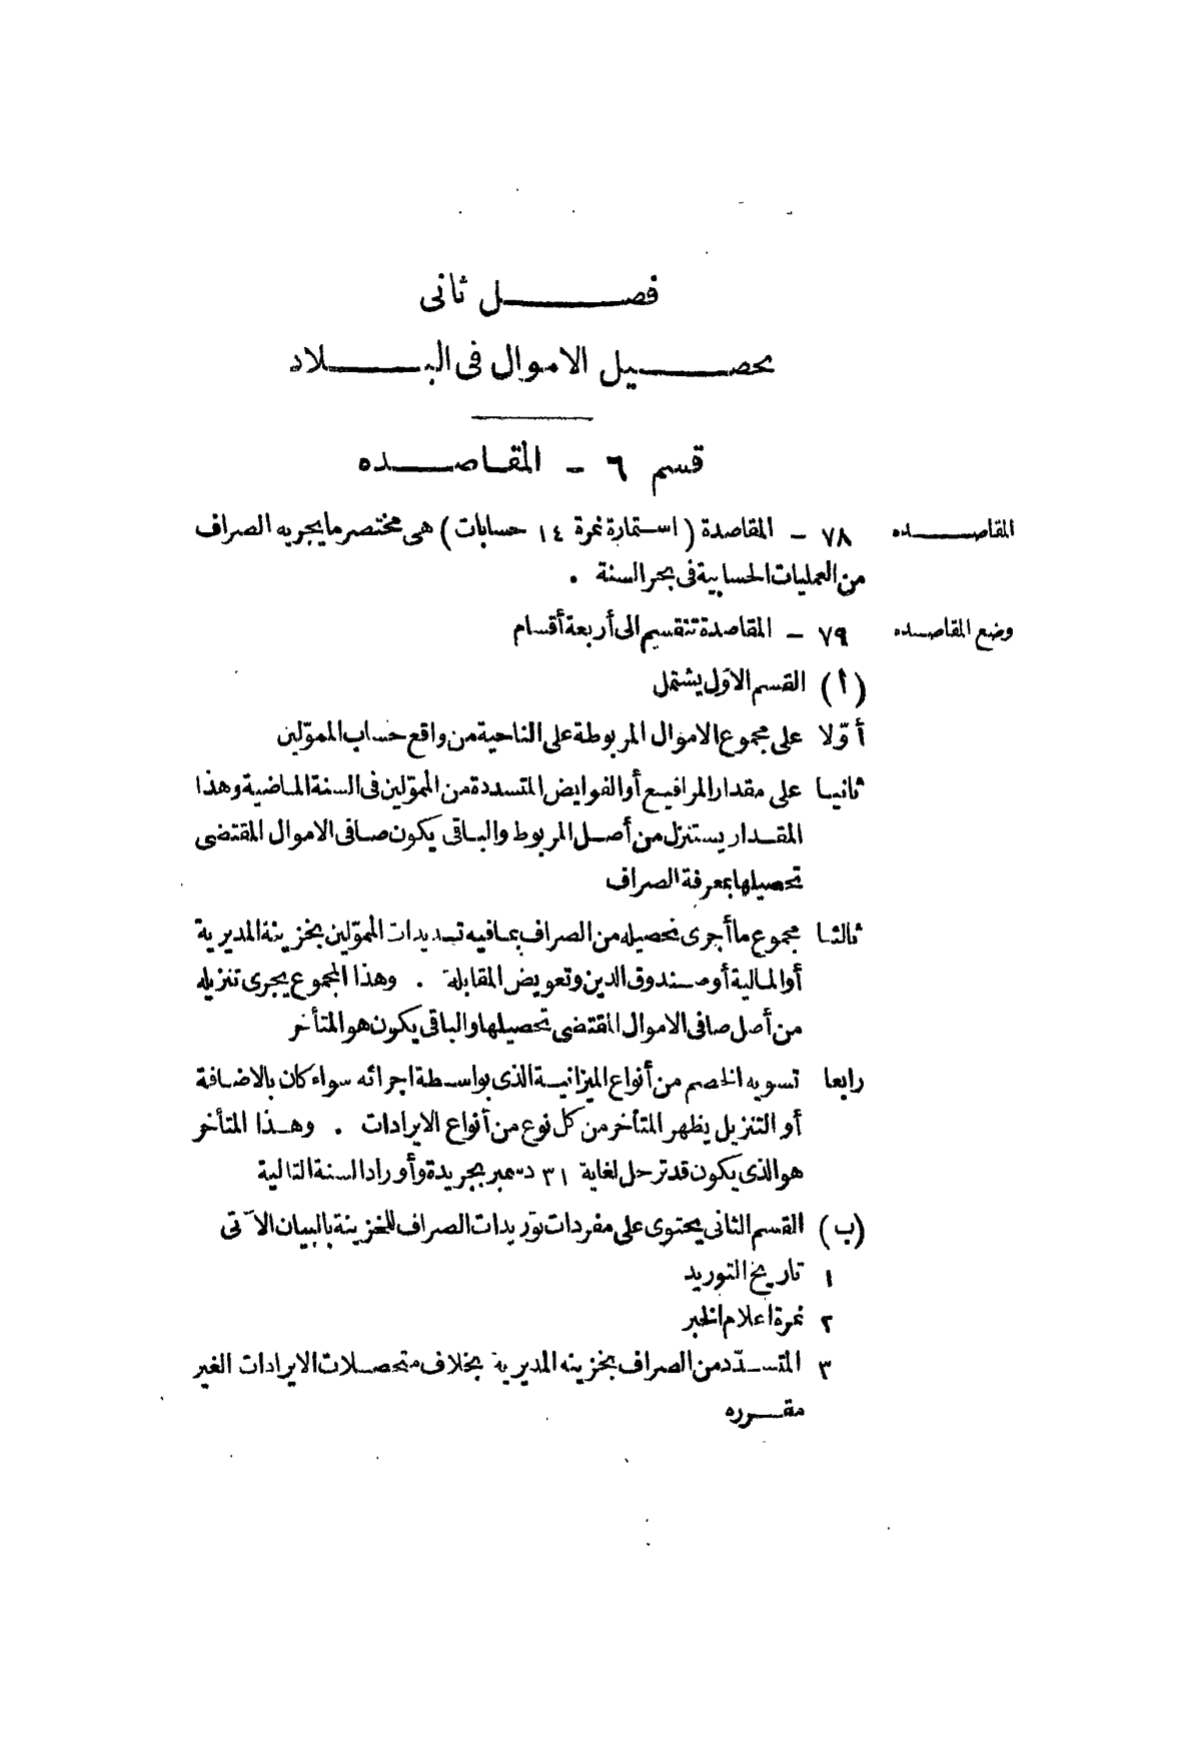 فصل ثانى
تحصيل الاموال فى البلاد
قسم ٦ - المقاصده
المقاصده ٧٨ - المقاصدة (استمارة نمرة ١٤ حسابات) هى مختصر مايجريه الصراف
من العمليات الحسابية فى بحر السنة .
وضع المقاصده ٧٩ - المقاصدة تنقسيم الى أربعة أقسام
(أ) القسم الاوّل يشتمل
أوّلا على مجموع الاموال المربوطة على الناحية من واقع حساب المموّلين
ثانيا على مقدار المرافيع أو الفوايض المتسددة من المموّلين فى السنة الماضية وهذا
المقدار يستنزل من أصل المربوط والباقى يكون صافى الاموال المقتضى
تحصيلها بمعرفة الصراف
ثالثا مجموع ما أجرى تحصيله من الصراف بمافيه تسديدات المموّلين بخزينة المديرية
أو المالية أو صندوق الدين وتعويض المقابلة . وهذا المجموع يجرى تنزيله
من أصل صافى الاموال المقتضى تحصيلها والباقى يكون هو المتأخر
رابعا تسويه الخصم من أنواع الميزانية الذى بواسطة اجرائه سواء كان بالاضافة
أو التنزيل يظهر المتأخر من كل نوع من أنواع الايرادات . وهذا المتأخر
هو الذى يكون قد ترحل لغاية ٣١ دسمبر بجريدة وأوراد السنة التالية
(ب) القسم الثانى يحتوى على مفردات توريدات الصراف للخزينة بالبيان الآتى
١ تاريخ التوريد
٢ نمرة اعلام الخبر
٣ المتسدّد من الصراف بخزينه المديرية بخلاف متحصلات الايرادات الغير
مقرره